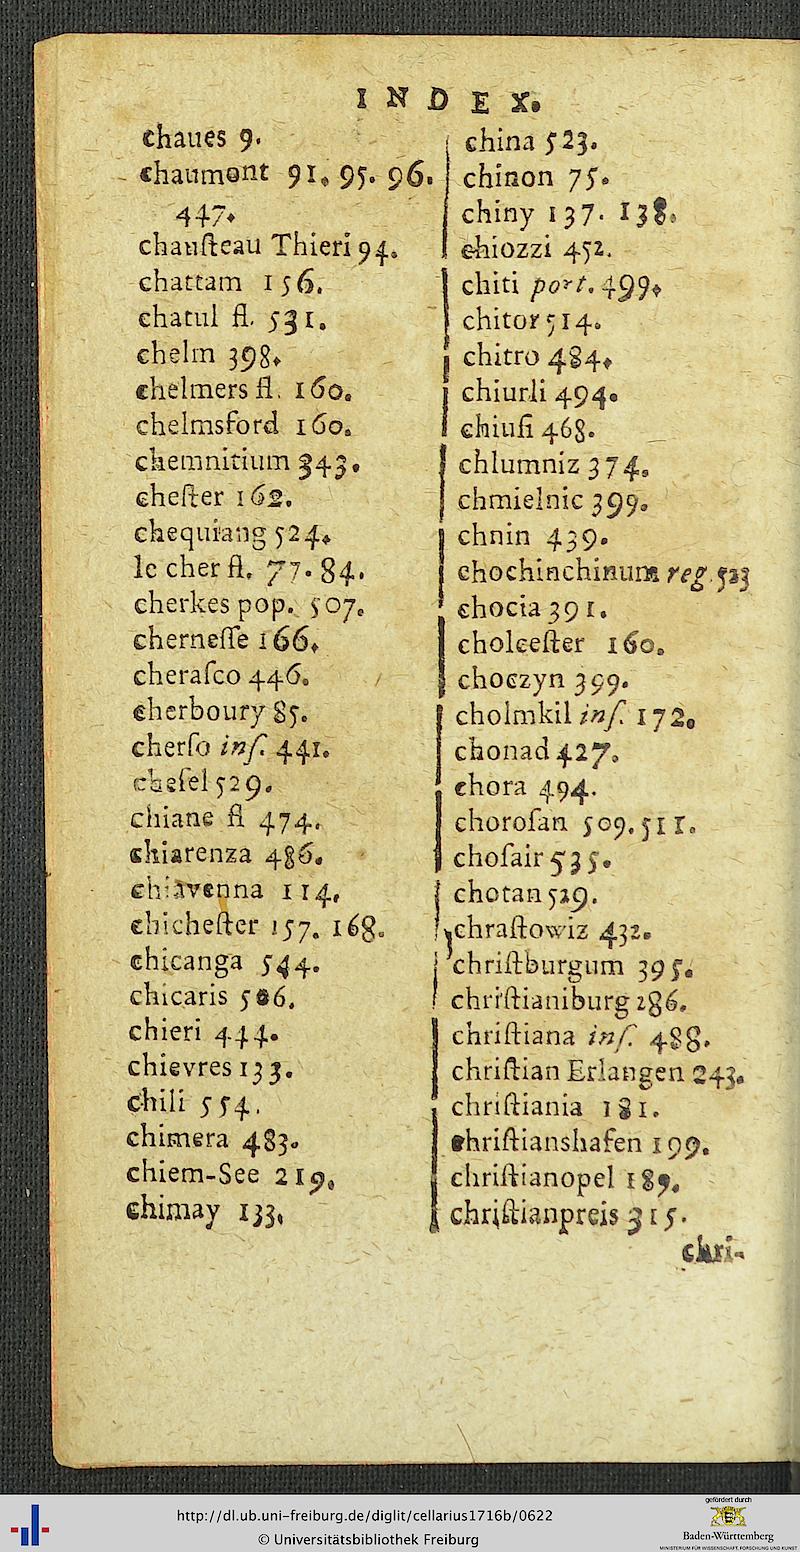 INDEX.
chaues 9.
chaumont 91. 95. 96.
447.
chauſteau Thieri 94.
chattam 156.
chatul fl. 531.
chelm 398.
chelmers fl. 160.
chelmsford 160.
chemnitium 343.
cheſter 162.
chequiang 524.
le cher fl. 77. 84.
cherkes pop. 507.
cherneſſe 166.
cheraſco 446.
cherboury 85.
cherſo inſ. 441.
cheſel 529.
chiane fl 474.
chiarenza 486.
chiavenna 114.
chicheſter 157. 168.
chicanga 544.
chicaris 506.
chieri 444.
chievres 133.
chili 554.
chimera 483.
chiem-See 219.
chimay 133.
china 523.
chinon 75.
chiny 137. 138.
chiozzi 452.
chiti port. 499.
chitor 514.
chitro 484.
chiurli 494.
chiuſi 468.
chlumniz 374.
chmielnic 399.
chnin 439.
chochinchinum reg. 523
chocia 391.
cholceſter 160.
choczyn 399.
cholmkil inſ. 172.
chonad 427.
chora 494.
choroſan 509. 511.
choſair 535.
chotan 529.
chraſtowiz 432.
chriſtburgum 395.
chriſtianiburg 286.
chriſtiana inſ. 488.
chriſtian Erlangen 243.
chriſtiania 181.
chriſtianshafen 199.
chriſtianopel 189.
chriſtianpreis 315.
chri-
http://dl.ub.uni-freiburg.de/diglit/cellarius1716b/0622
© Universitätsbibliothek Freiburg
gefördert durch
Baden-Württemberg
MINISTERIUM FÜR WISSENSCHAFT, FORSCHUNG UND KUNST